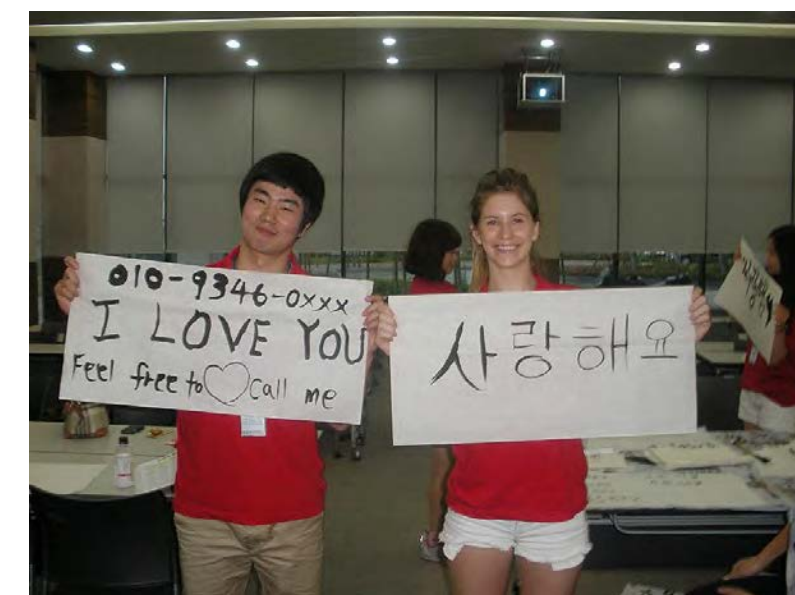 010-9346-0xxx
I LOVE YOU
Feel free to♡call me
사랑해요